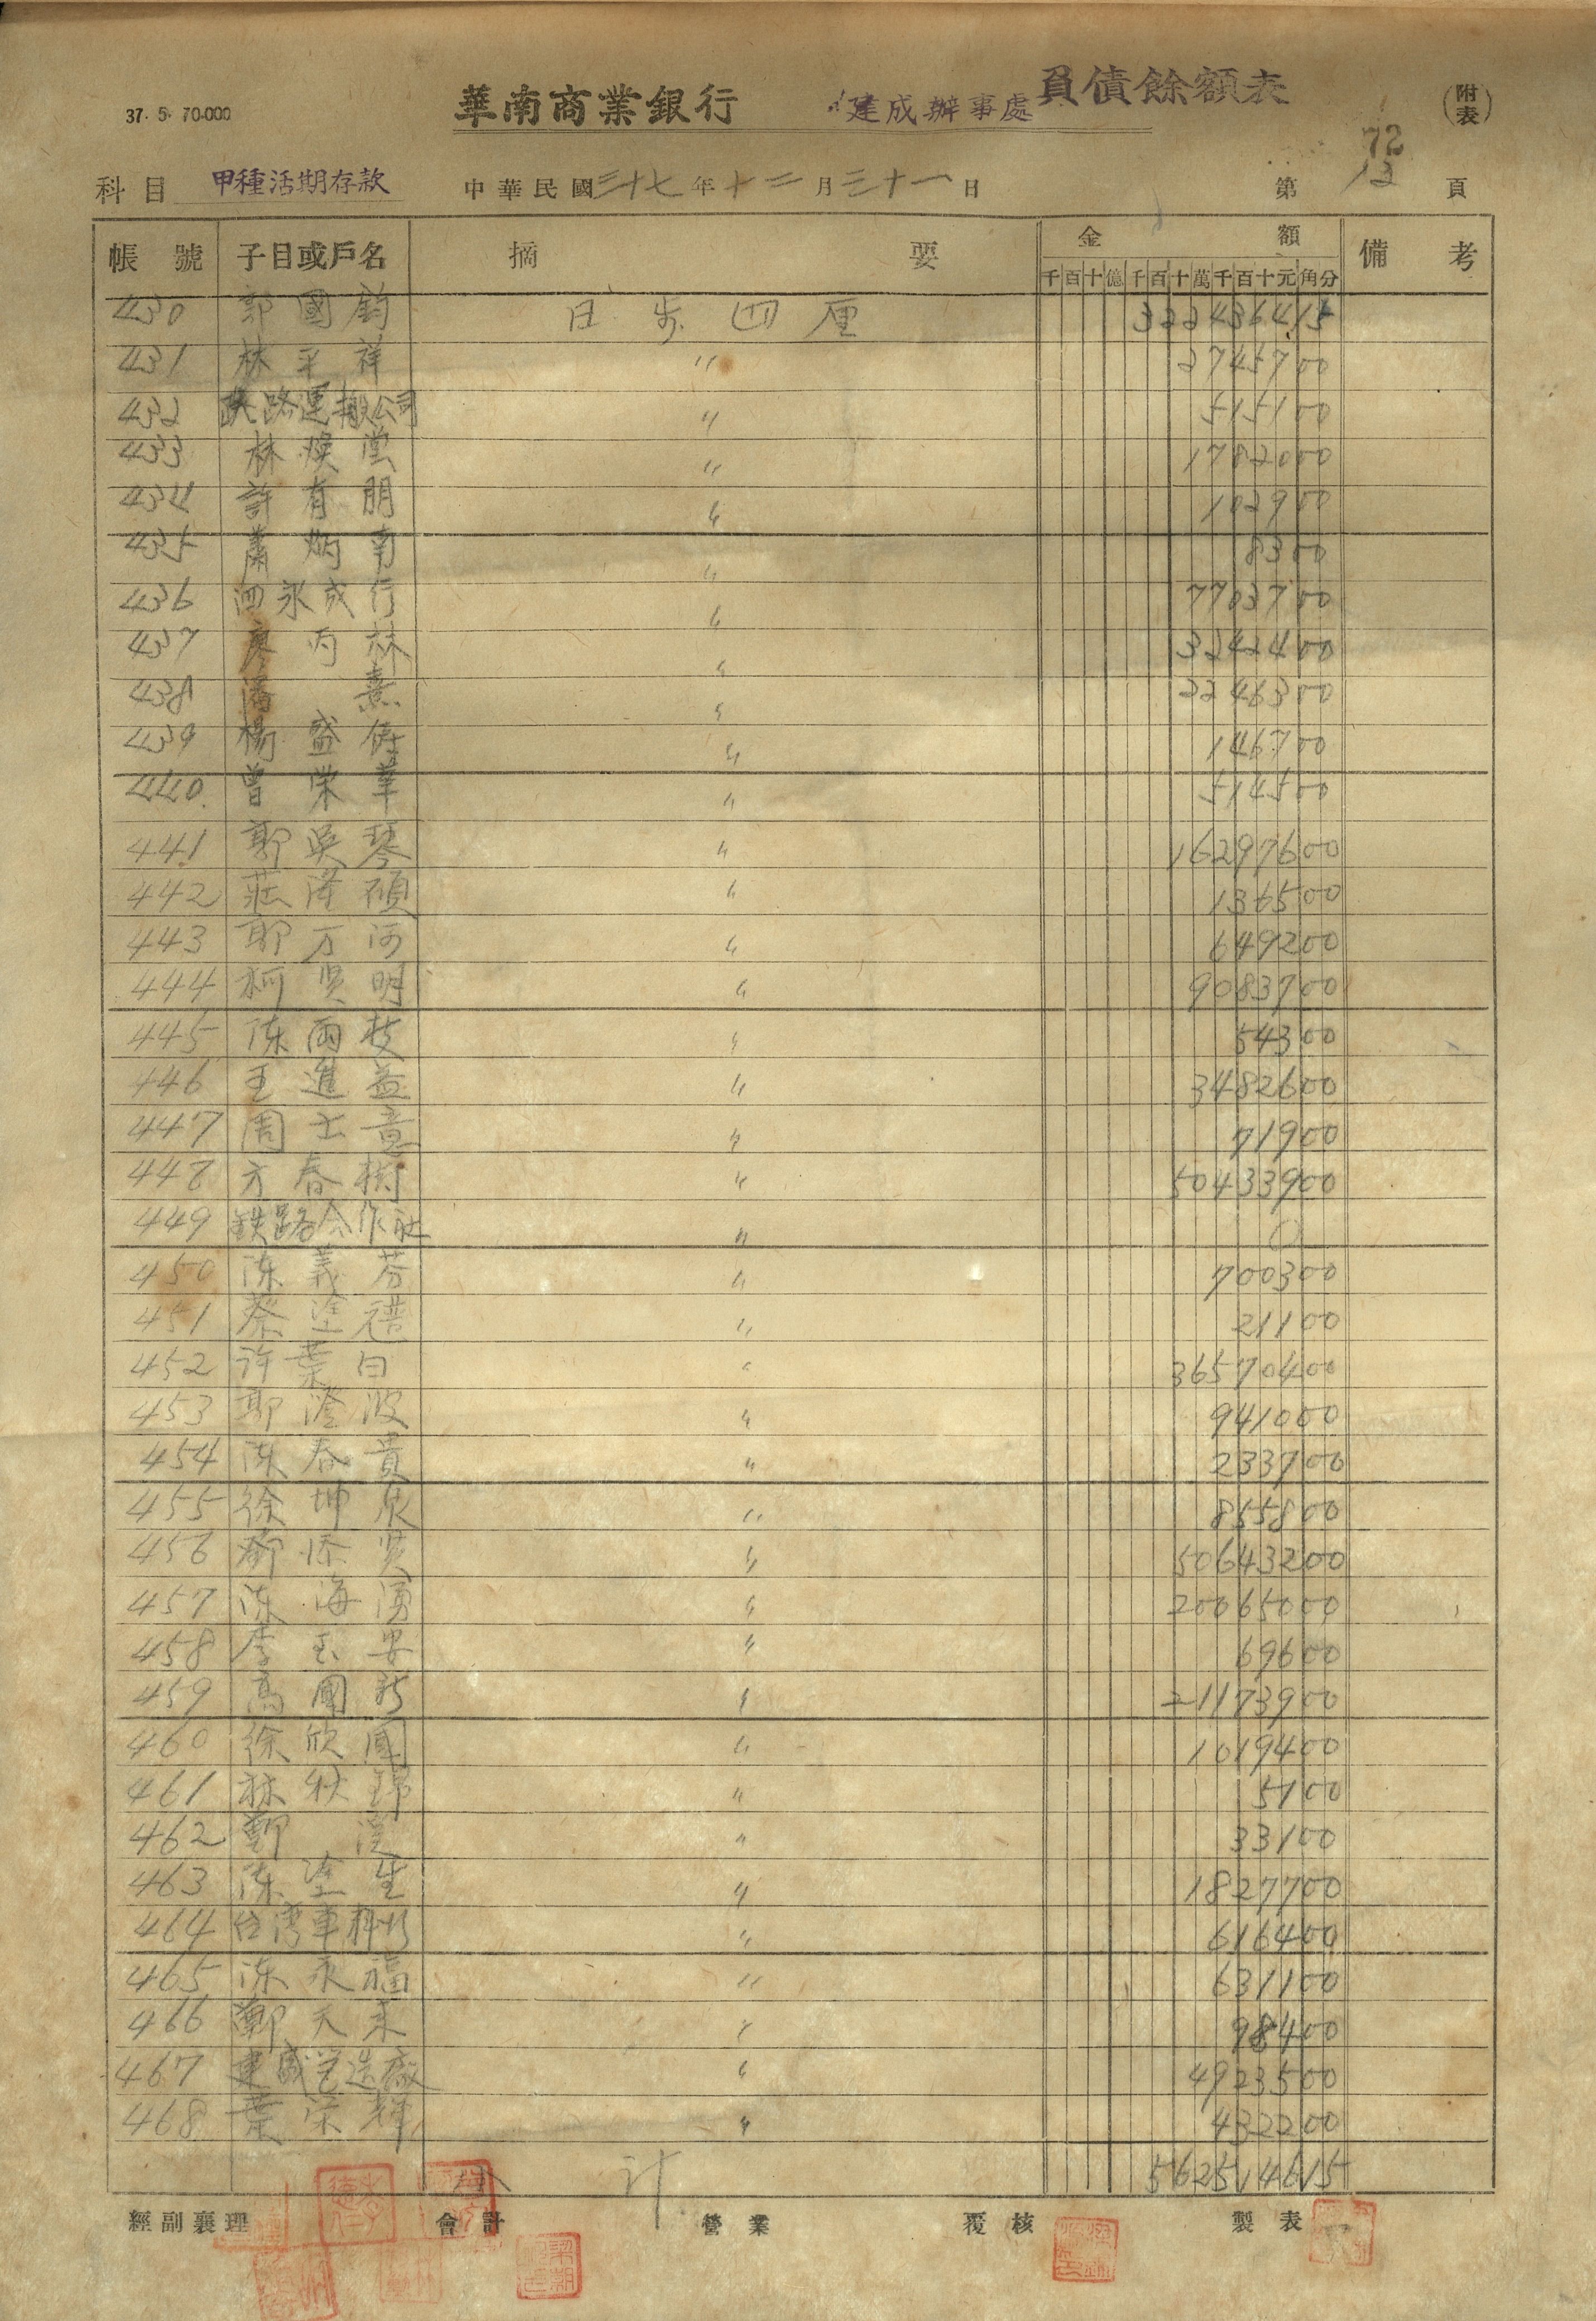 37. 5. 70.000
華南商業銀行 建成辦事處 負債餘額表 (附表)
72
科目 甲種活期存款 中華民國三十七年十二月三十一日 第 12 頁
帳號 子目或戶名 摘要 金額 備考
千百十億千百十萬千百十元角分
430 郭國鈞 日步四厘 322436415
431 林平祥 〃 2745700
432 鉄路運搬公司 〃 515100
433 林煥堂 〃 1782000
434 許有朋 〃 102900
435 蕭炳南 〃 8300
436 四永成行 〃 7703700
437 廖丙林 〃 3242400
438 潘熹 〃 2246300
439 楊盛 〃 146700
440 曾榮華 〃 514500
441 郭吳琴 〃 16297600
442 莊隆碩 〃 136500
443 郭万河 〃 649200
444 柯贤明 〃 9083700
445 陈雨枝 〃 54300
446 王進益 〃 3482600
447 周士意 〃 71900
448 方春樹 〃 50433900
449 鉄路合作社 〃 0
450 陈義芬 〃 700300
451 蔡塗 〃 21100
452 许葉白 〃 36570400
453 郭澄波 〃 941000
454 陈春貴 〃 233700
455 徐坤泉 〃 855800
456 鄭添贤 〃 50643200
457 陈海湧 〃 20065000
458 李玉安 〃 69600
459 高國新 〃 21173900
460 徐欣國 〃 1019400
461 林秋錦 〃 5100
462 鄭 〃 33100
463 陈塗生 〃 1827700
464 台湾車料行 〃 616400
465 陈永福 〃 631100
466 鄭天来 〃 98400
467 建成营造廠 〃 4923500
468 葉荣輝 〃 432200
小計 562514615
經副襄理 會計 營業 覆核 製表